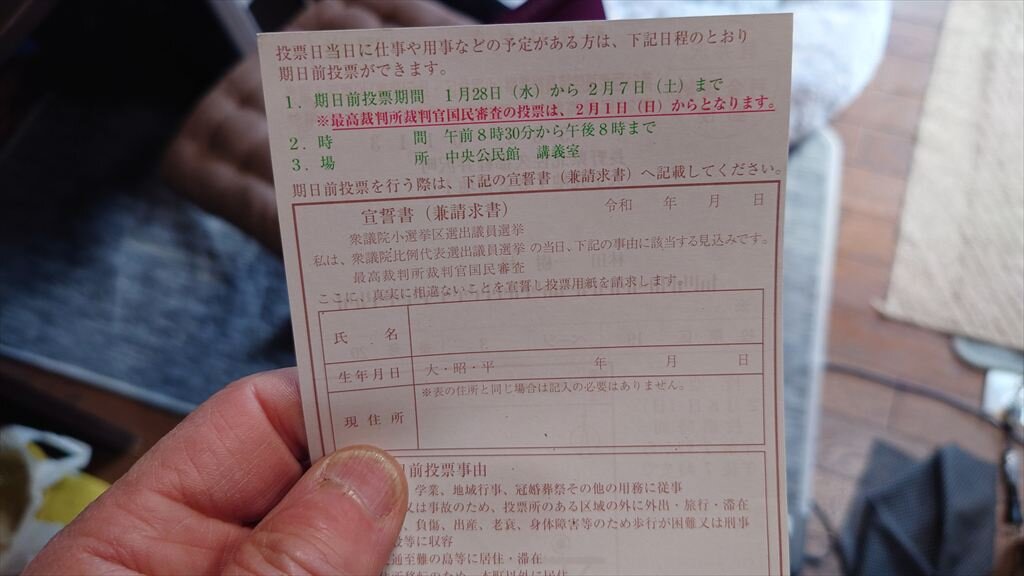 投票日当日に仕事や用事などの予定がある方は、下記日程のとおり
期日前投票ができます。
1．期日前投票期間　1月28日（水）から 2月7日（土）まで
※最高裁判所裁判官国民審査の投票は、2月1日（日）からとなります。
2．時　　　　間　午前8時30分から午後8時まで
3．場　　　　所　中央公民館　講義室
期日前投票を行う際は、下記の宣誓書（兼請求書）へ記載してください。
宣誓書（兼請求書）　　　　令和　　年　　月　　日
衆議院小選挙区選出議員選挙
私は、衆議院比例代表選出議員選挙 の当日、下記の事由に該当する見込みです。
最高裁判所裁判官国民審査
ここに、真実に相違ないことを宣誓し投票用紙を請求します。
氏　　名
生年月日　大・昭・平　　　　年　　　月　　　日
※表の住所と同じ場合は記入の必要はありません。
現 住 所
前投票事由
学業、地域行事、冠婚葬祭その他の用務に従事
又は事故のため、投票所のある区域の外に外出・旅行・滞在
負傷、出産、老衰、身体障害等のため歩行が困難又は刑事
等に収容
通至難の島等に居住・滞在
住所移転のため、本町以外に居住